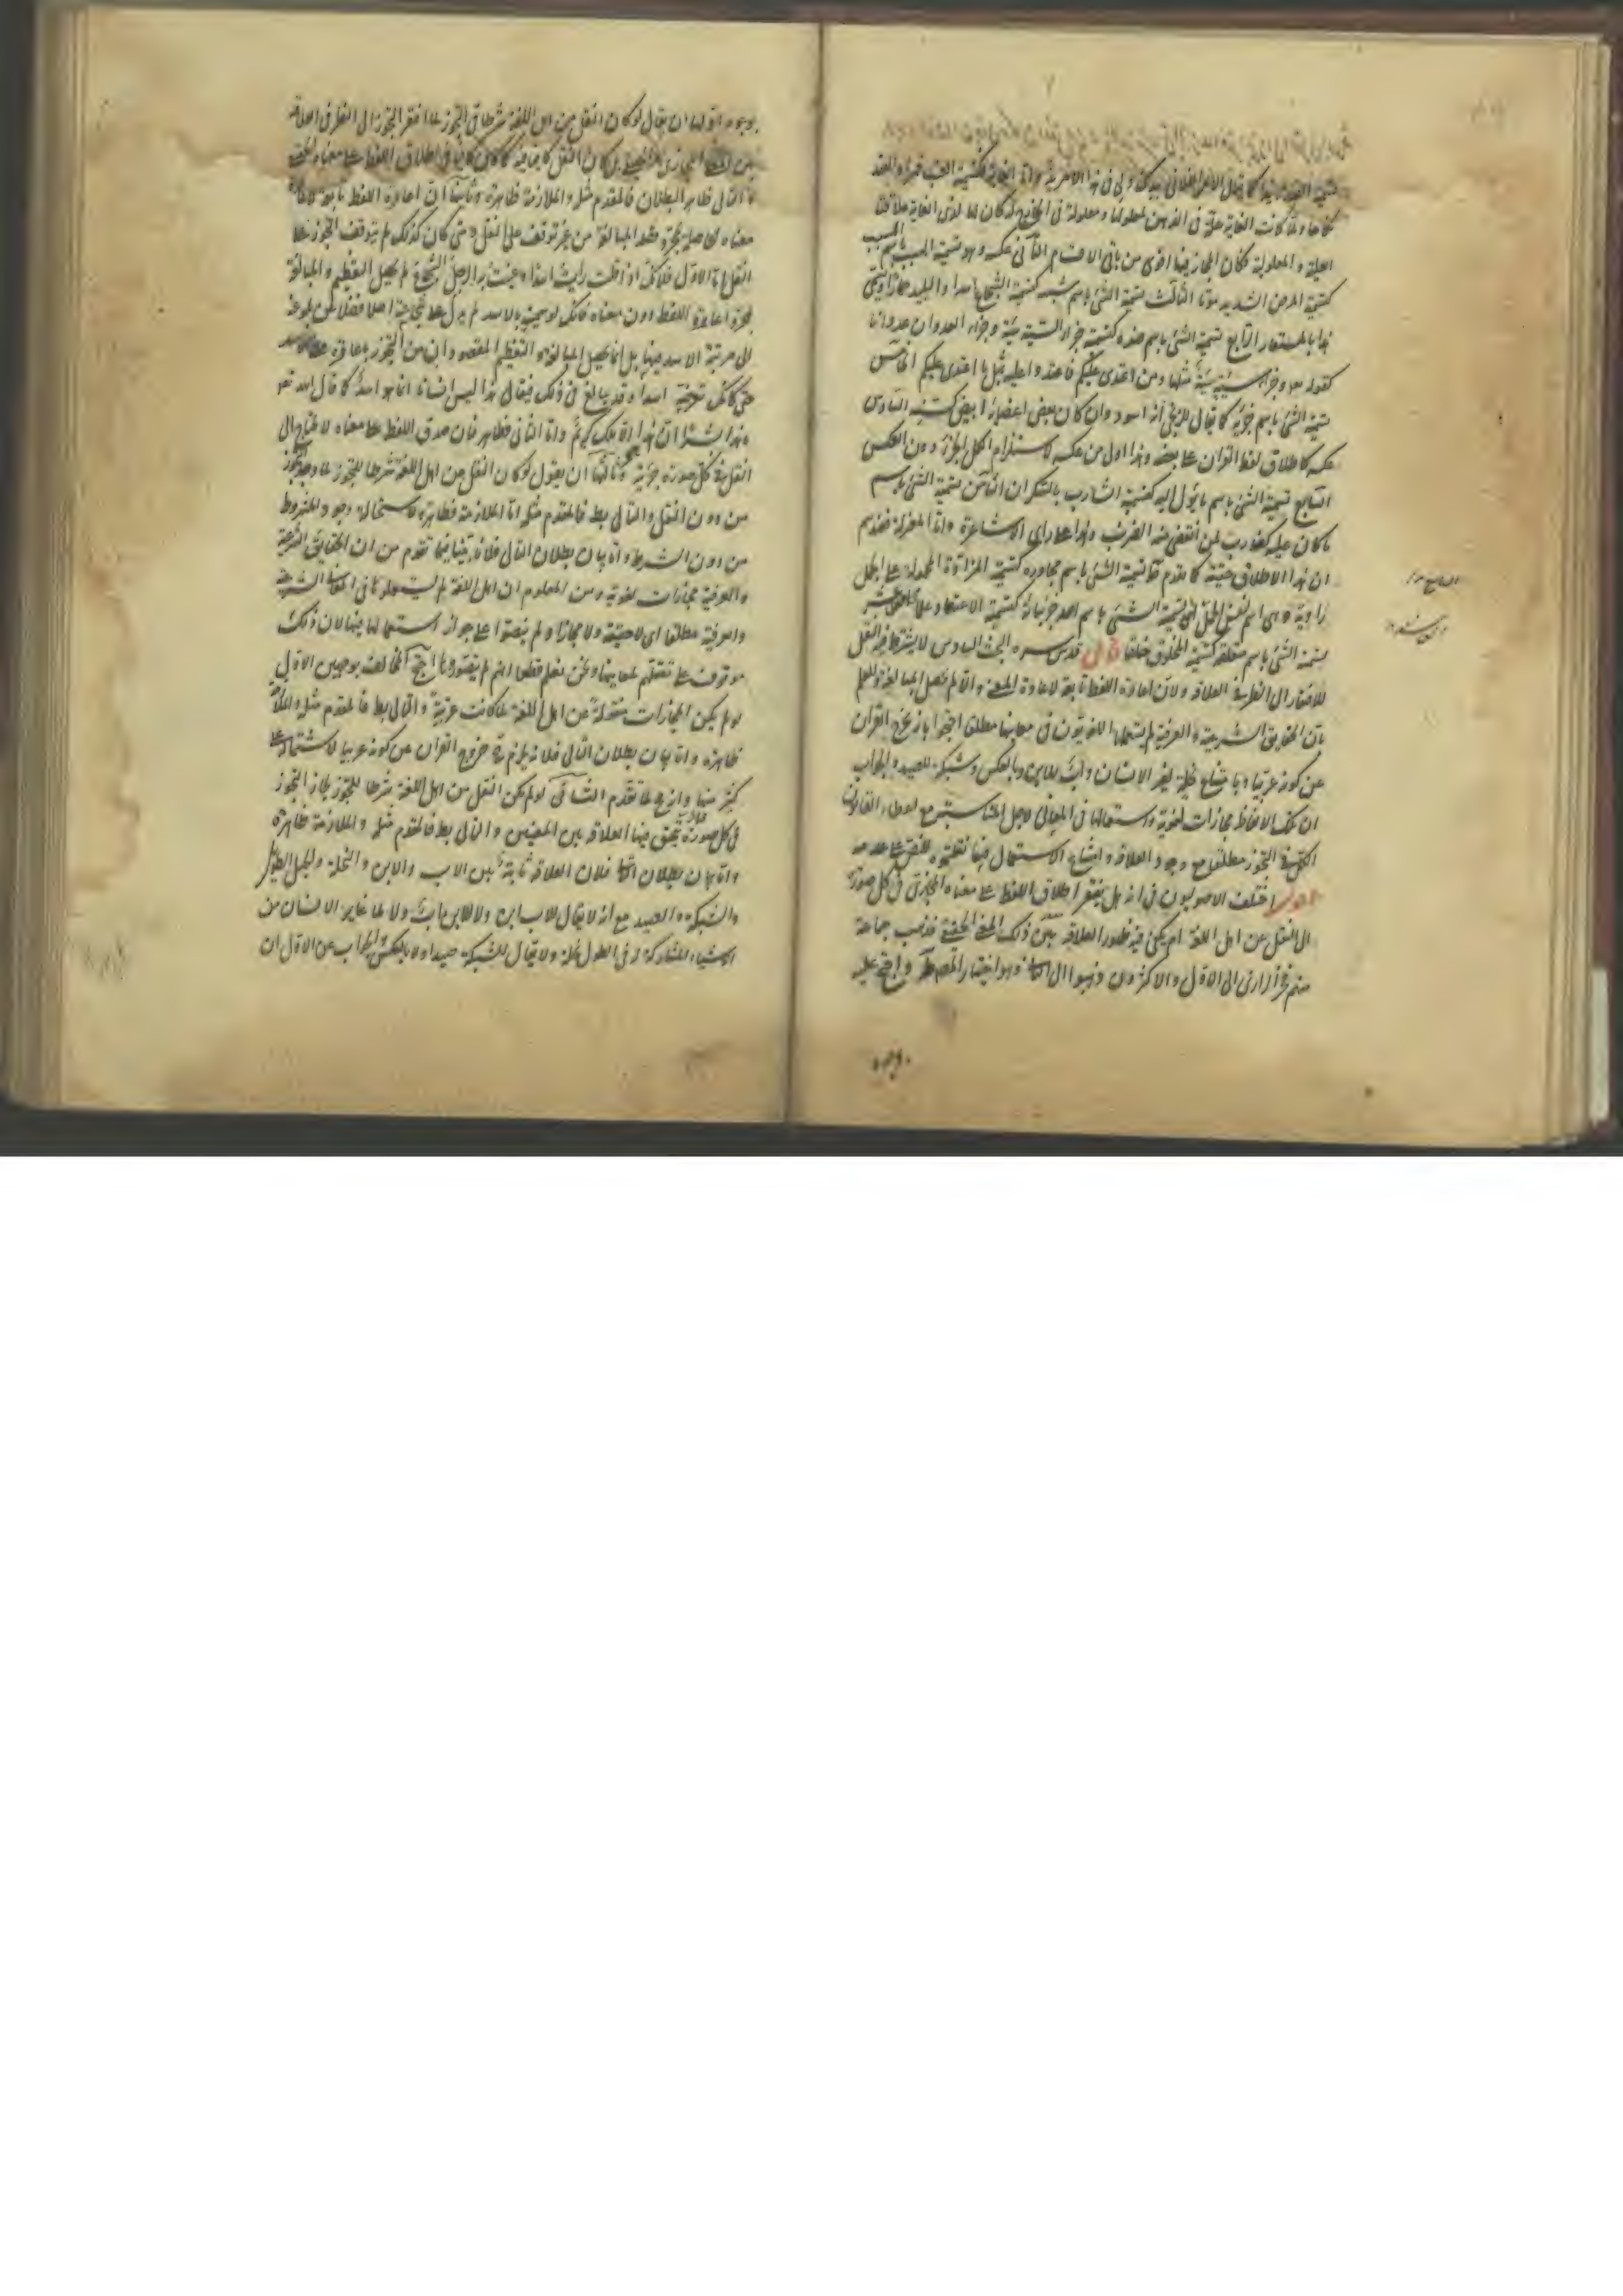 العلية والمعلولية فكان المجاز فيها اقوى من باقى الاقسام الثانى عكسه وهو تسمية المسبب باسم السبب
كتسمية المرض الشديد موتا الثالث تسمية الشئ باسم شبيهه كتسمية الشجاع اسدا والبليد حمارا ويسمى
هذا بالمستعار الرابع تسمية الشئ باسم ضده كتسمية جزاء السيئة سيئة وجزاء العدوان عدوانا
كقوله تعه وجزاء سيئة سيئة مثلها ومن اعتدى عليكم فاعتدوا عليه بمثل ما اعتدى عليكم الخامس
تسمية الشئ باسم جزئه كما يقال للزنجى انه اسود وان كان بعض اعضائه ابيض كسنه السادس
عكسه كاطلاق لفظ القران على بعضه وهذا اولى من عكسه لاستلزام الكل الجزء دون العكس
السابع تسمية الشئ باسم ما يؤل اليه كتسمية الشارب بالسكران الثامن تسمية الشئ باسم
ما كان عليه كضارب لمن انقضى منه الضرب وهذا على راى الاشاعرة واما المعتزلة فعندهم
ان هذا الاطلاق حقيقة كما تقدم التاسع تسمية الشئ باسم مجاوره كتسمية المزادة المحمولة على الجمل
راوية وهى اسم لنفس الجمل العاشر تسمية الشئ باسم احد جزئياته كتسمية الاعتقاد علما الحادى عشر
تسمية الشئ باسم متعلقه كتسمية المخلوق خلقا قال قدس سره البحث السادس لا يشترط فيه النقل
للافتقار الى النظر فى العلاقة ولان اعارة اللفظ تابعة لاعارة المعنى والا لم تحصل المبالغة وللعلم
بان الحقايق الشرعية والعرفية لم يستعملها اللغويون فى معانيها مطلقا احتجوا بانه يخرج القران
عن كونه عربيا وبامتناع نخلة لغير الانسان واب للابن وبالعكس وشبكة للصيد والجواب
ان تلك الالفاظ مجازات لغوية واستعمالها فى المعانى لاجل المناسبة مع اعطاء القانون
الكلى فى التجوز مطلقا مع وجود العلاقة وامتناع الاستعمال فيما نقلتموه للنص على عدمه
اقول اختلف الاصوليون فى انه هل يفتقر اطلاق اللفظ على معناه المجازى فى كل صورة
الى النقل عن اهل اللغة ام يكفى فيه ظهور العلاقة بينه وبين ذلك المعنى الحقيقى فذهب جماعة
منهم فخر الرازى الى الاول والاكثرون ذهبوا الى الثانى وهو اختيار المصنف واحتج عليه
بوجوه
بوجوه اولها ان يقال لو كان النقل من اهل اللغة شرطا فى التجوز لما افتقر التجوز الى النظر فى العلاقة
بين المعنى المجازى والحقيقى بل كان النقل كافيا فيه كما كان كافيا فى اطلاق اللفظ على معناه الحقيقى
والتالى ظاهر البطلان فالمقدم مثله والملازمة ظاهرة وثانيها ان اعارة اللفظ تابعة لاعارة
معناه لحاصلية بمجرد قصد المبالغة من غير توقف على النقل ومتى كان كذلك لم يتوقف التجوز على
النقل اما الاول فلانك اذا قلت رايت اسدا وعنيت به الرجل الشجاع لم يحصل التعظيم والمبالغة
بمجرد اعارة اللفظ دون معناه فانك لو سميته بالاسد لم يدل على شجاعته اصلا فضلا عن بلوغه
الى مرتبة الاسد فيها بل انما يحصل المبالغة والتعظيم المقصودان من التجوز باعارة معنى الاسد
حتى كانك توهمته اسدا وقد يبالغ فى ذلك فيقال هذا ليس انسانا انما هو اسد كما قال الله تعه
ما هذا بشرا ان هذا الا ملك كريم واما الثانى فظاهر فان صدق اللفظ على معناه لا يحتاج الى
النقل فى كل صورة جزئية وثالثها ان يقول لو كان النقل من اهل اللغة شرطا للتجوز لما وجد التجوز
من دون النقل والتالى بط فالمقدم مثله اما الملازمة فظاهرة لاستحالة وجود المشروط
من دون الشرط واما بيان بطلان التالى فلانه بينا فيما تقدم من ان الحقايق الشرعية
والعرفية مجازات لغوية ومن المعلوم ان اهل اللغة لم يستعملوها فى المعانى الشرعية
والعرفية مطلقا اى لا حقيقة ولا مجازا ولم ينصوا على جواز استعمالها فيها لان ذلك
موقوف على تعقلهم لمعانيها ونحن نعلم قطعا انهم لم يتصوروها احتج المخالف بوجهين الاول
لو لم يكن المجازات منقولة عن اهل اللغة لما كانت عربية والتالى بط فالمقدم مثله والملازمة
ظاهرة واما بيان بطلان التالى فلانه يلزم خروج القران عن كونه عربيا لاشتماله على
كثير منها وانه بط لما تقدم الثانى لو لم يكن النقل من اهل اللغة شرطا للتجوز لجاز التجوز
فى كل صورة تحقق فيها العلاقة بين المعنيين والتالى بط فالمقدم مثله والملازمة ظاهرة
واما بيان بطلان التالى فلان العلاقة ثابتة بين الاب والابن والنخلة والجبل الطويل
والشبكة والصيد مع انه لا يقال للاب ابن ولا للابن اب ولا لما غاير الانسان من
الاشياء المشاركة له فى الطول نخلة ولا يقال للشبكة صيد ولا بالعكس والجواب عن الاول ان